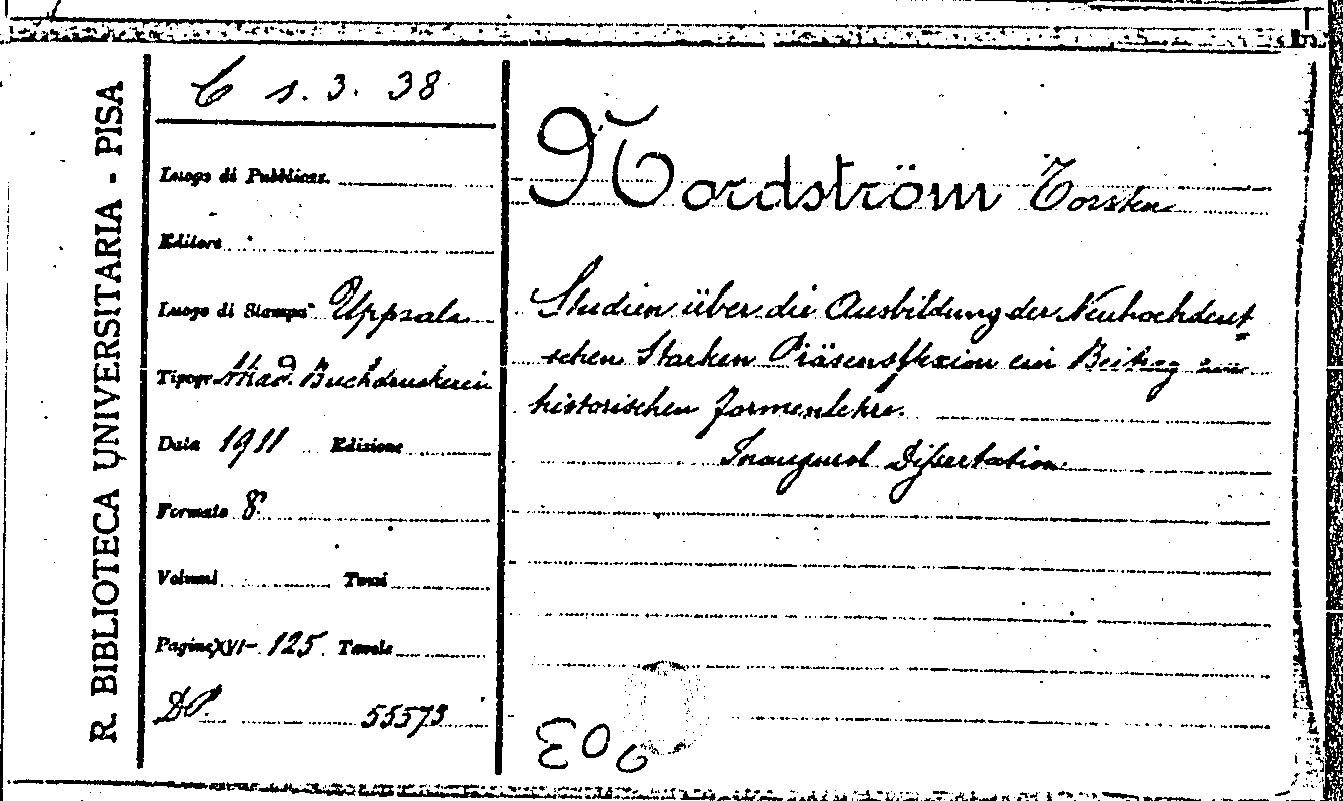 R. BIBLIOTECA UNIVERSITARIA - PISA
C s. 3. 38
Luogo di Pubblicaz.
Editore
Luogo di Stampa Uppsala
Tipogr. Akad. Buchdruckerein
Data 1911 Edizione
Formato 8°
Volumi Tomi
Pagine XVI- 125 Tavole
DP. 55573
Nordström Torsten
Studien über die Ausbildung der Neuhochdeut=
schen Starken Präsensflexion ein Beitrag zur
historischen Formenlehre.
Inaugural Dissertation